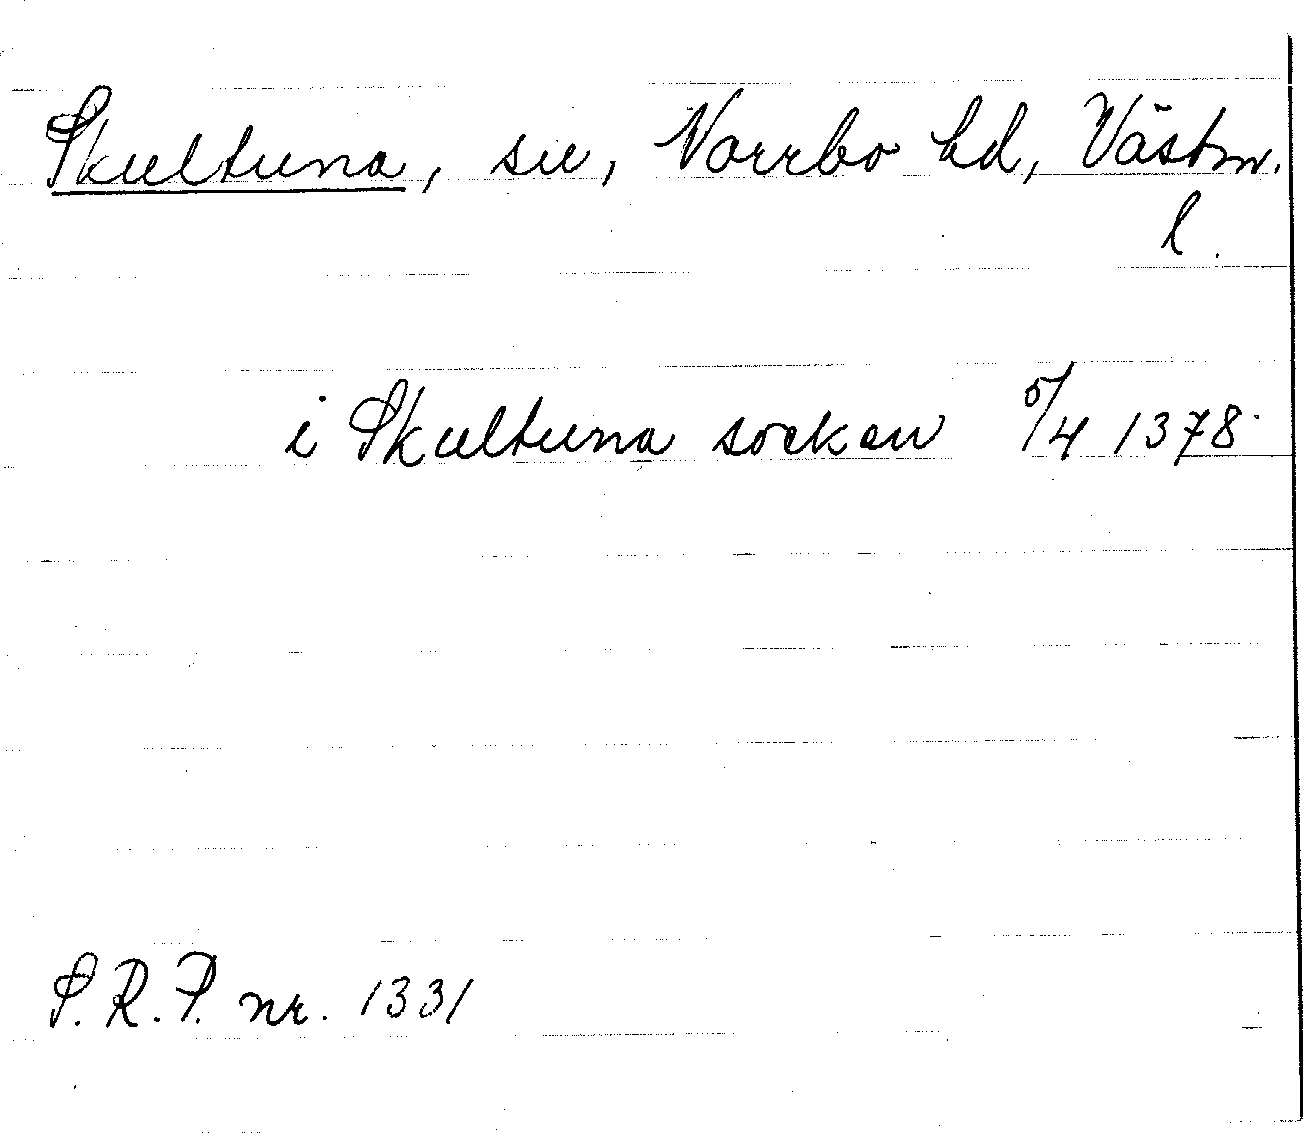 Skultuna, sn, Norrbo hd, Västm.
l.
i Skultuna socken 5/4 1378
S.R.P. nr. 1331